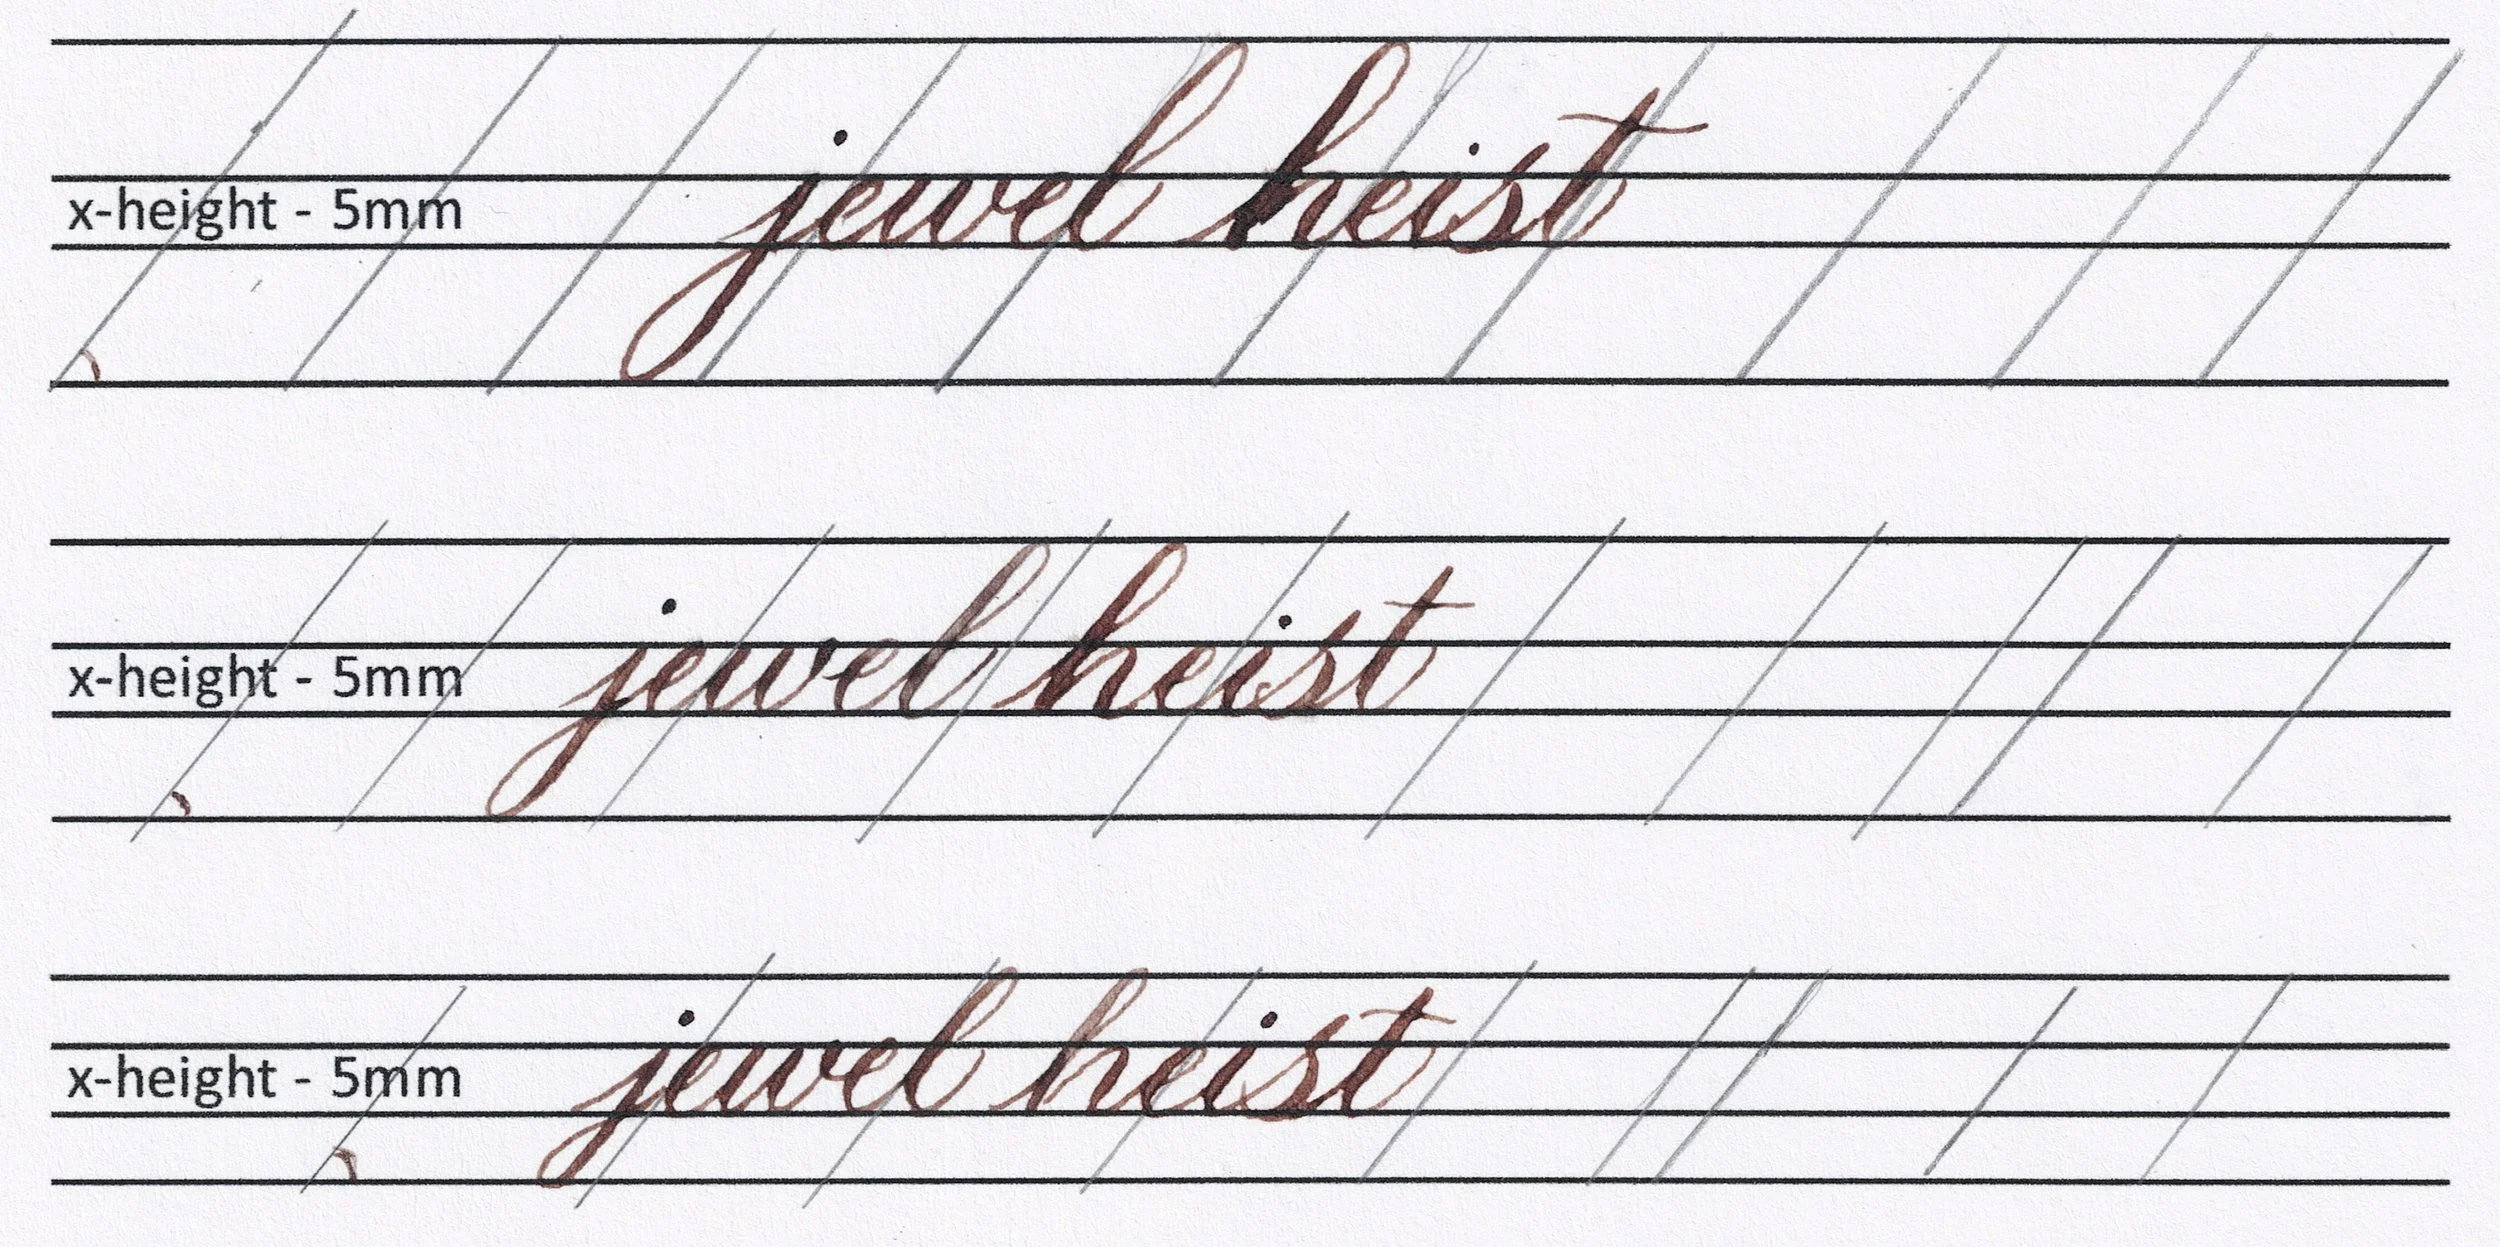 x-height - 5mm jewel heist
x-height - 5mm jewel heist
x-height - 5mm jewel heist